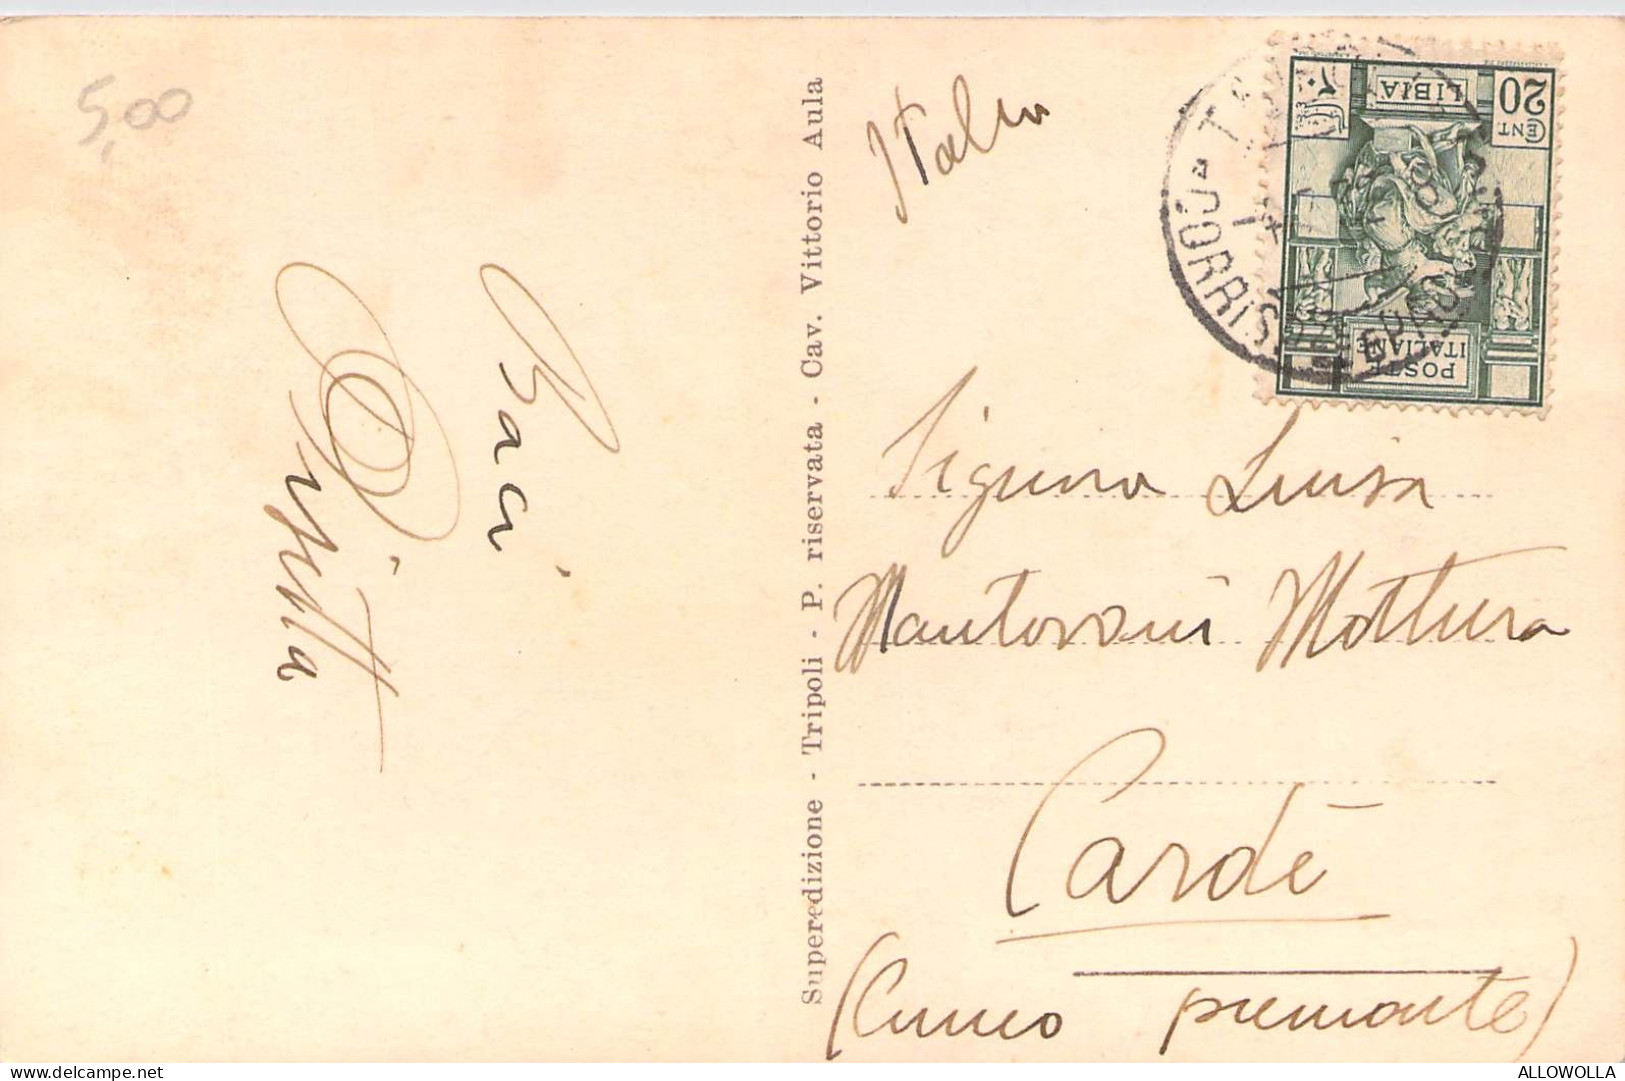 5,00
Baci
Superedizione - Tripoli - P. riservata - Cav. Vittorio Aula
Italia
20
CENT
LIBIA
POSTE
ITALIANE
Signora Luisa
Mottura
Cardè
(Cuneo piemonte)
delcampe.net
ALLOWOLLA